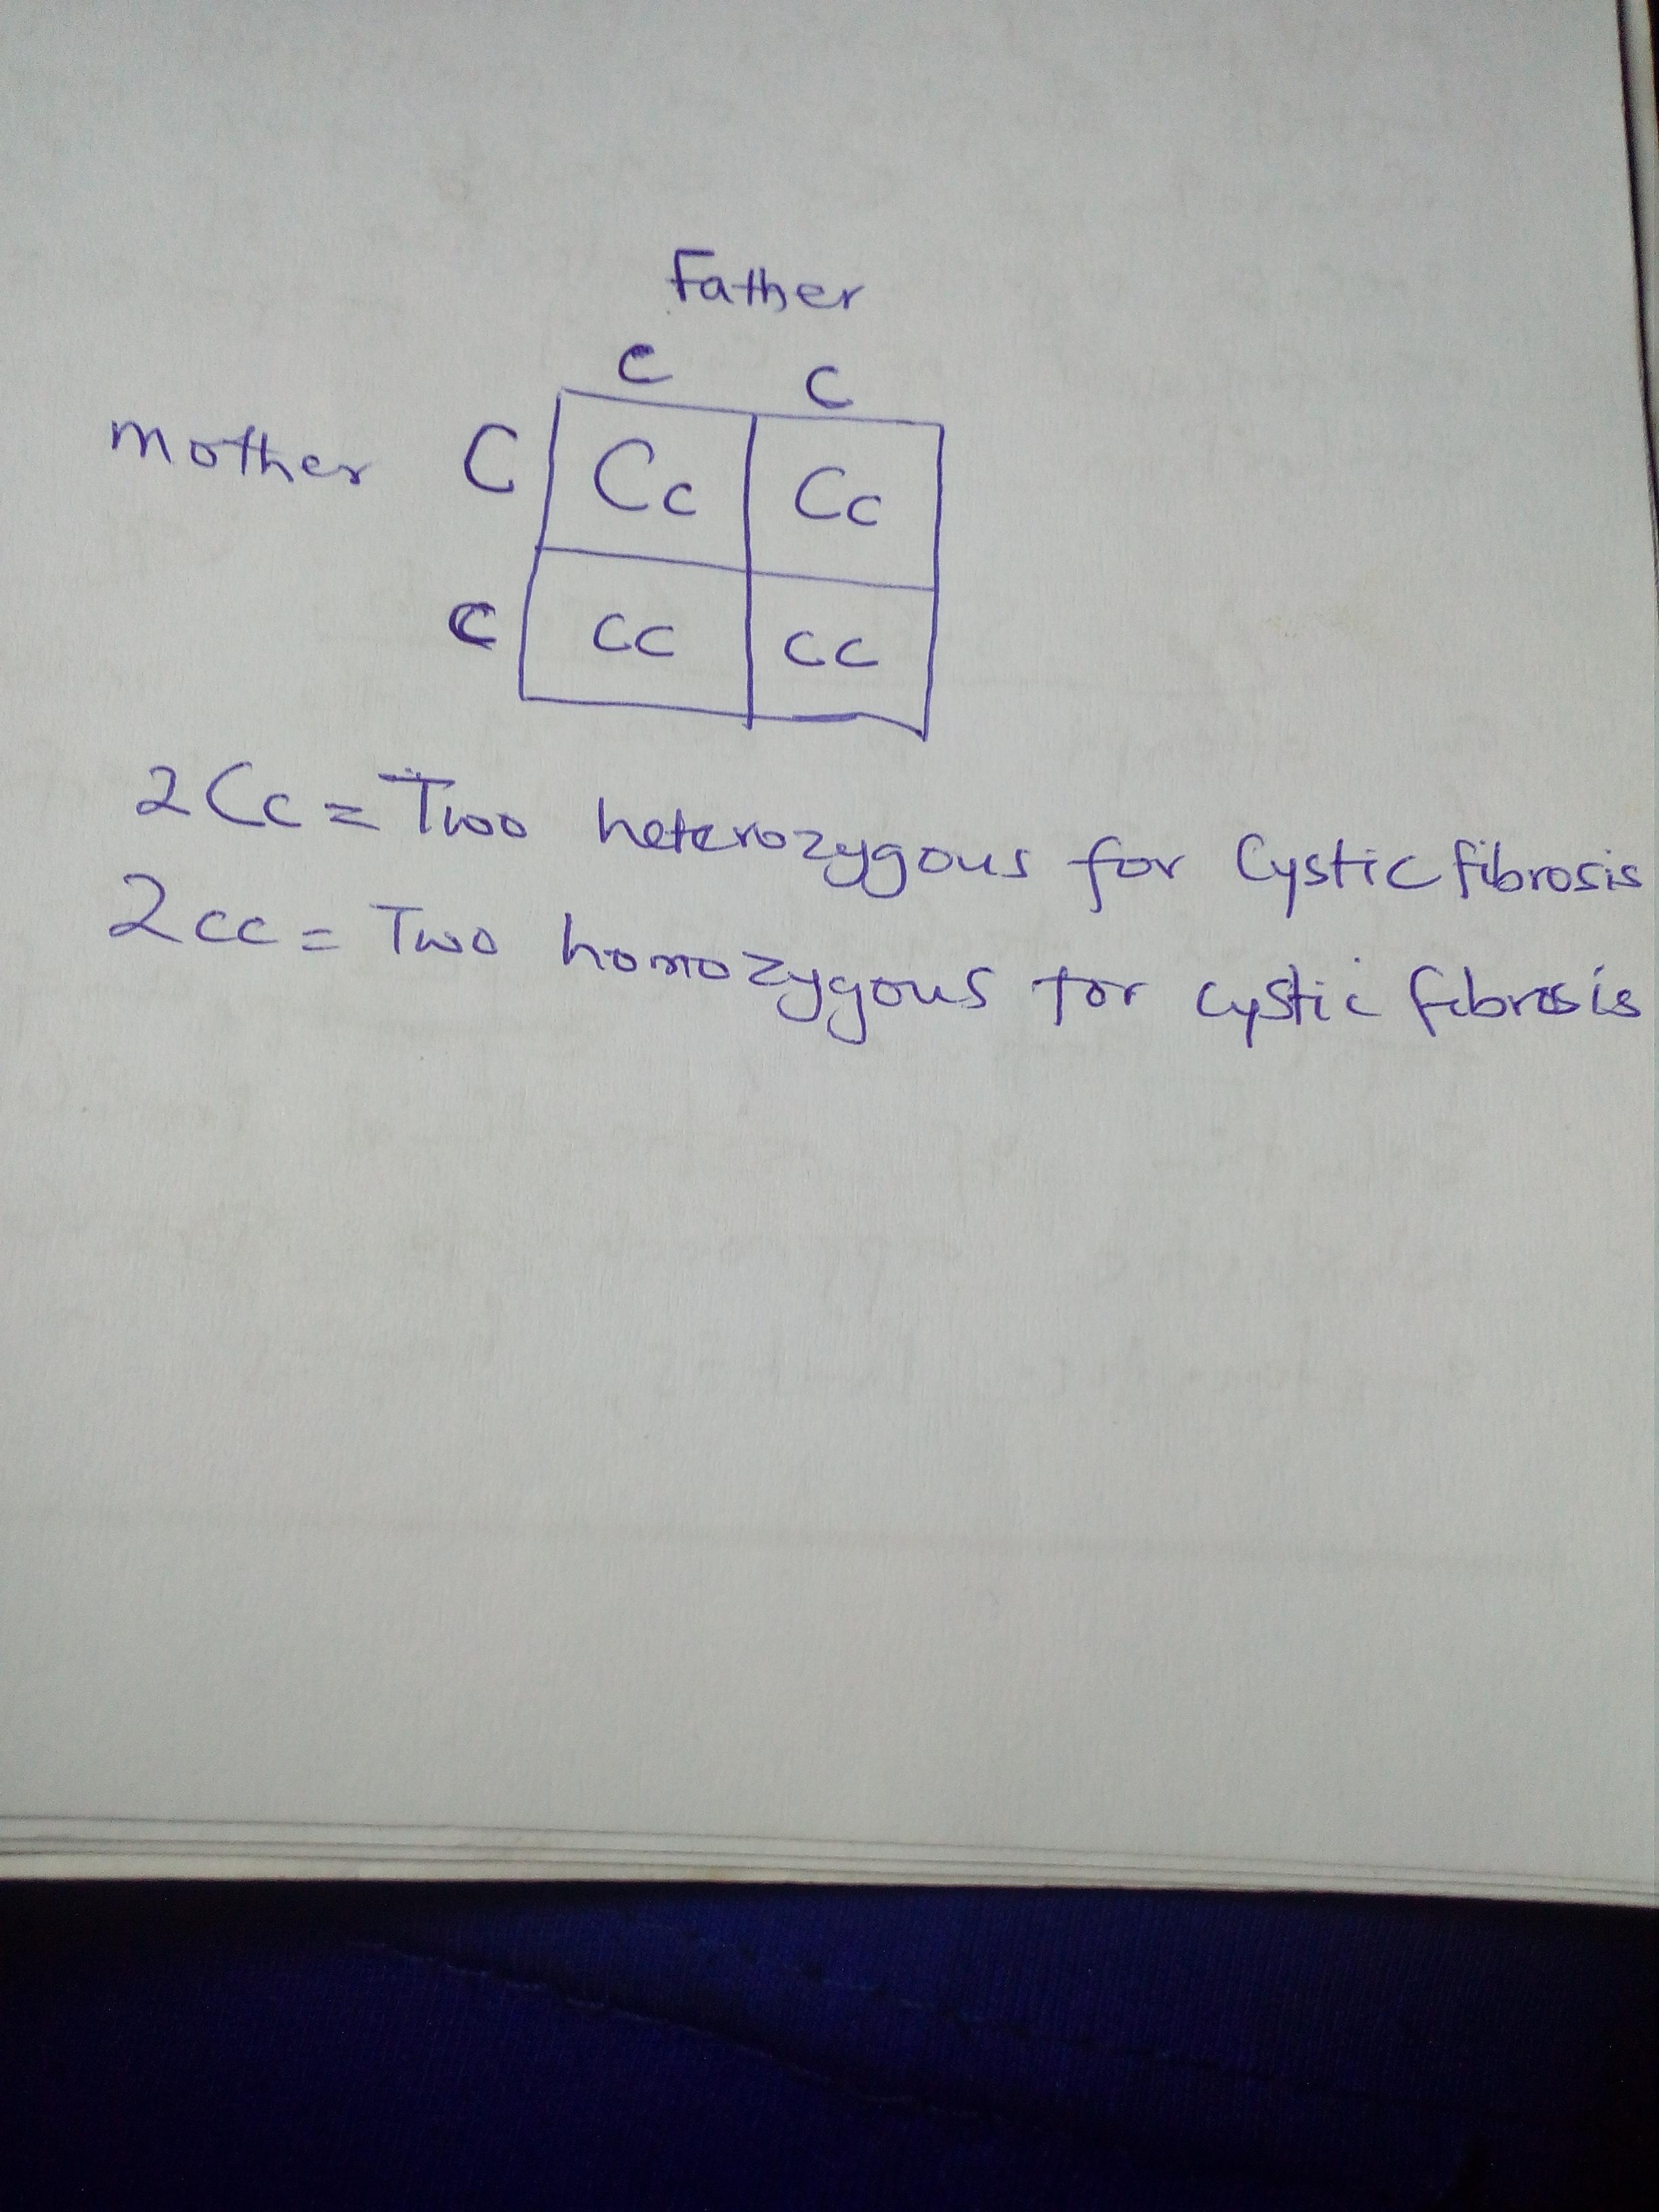 Father
c c
mother C Cc Cc
c cc cc
2Cc = Two heterozygous for Cystic fibrosis
2cc = Two homozygous for cystic fibrosis